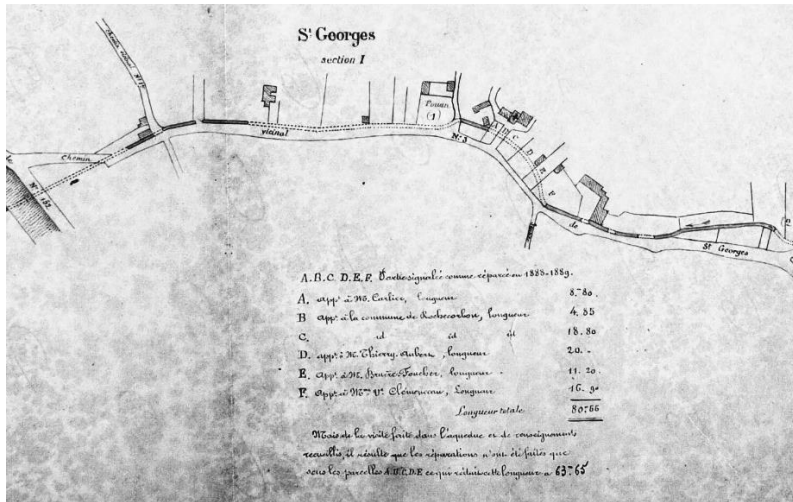 St Georges
section I
Chemin vicinal N°
Touan
(1)
vicinal
Chemin
N° 152
N° 3
A B C D E F
de
St Georges
A. B. C. D. E. F. Partie signalée comme réparée en 1888-1889.
A. appt à M. Carlier, longueur 8.m80.
B appt à la commune de Rochecorbon, longueur 4. 85
C. id id id 18. 80
D. appt à M. Thierry-Aubert, longueur 20. -
E. Appt à M. Foucher, longueur. 11. 20.
F. Appt à Mme Ve Clémenceau, Longueur 16. 90
Longueur totale 80m55
Mais de la visite faite dans l'aqueduc et de renseignements
recueillis, il résulte que les réparations n'ont été faites que
sous les parcelles A.B.C.D.E ce qui réduit cette longueur à 63m65